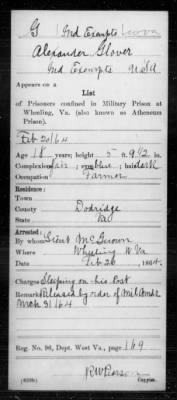 G | Ind Exempts | W Va
Alexander Glover
Ind Exempts U S A
Appears on a
List
of Prisoners confined in Military Prison at
Wheeling, Va. (also known as Atheneum
Prison).
Feb 20/64
Age 18 years; height 5 ft. 9 1/2 in.
Complexion fair; eyes blue; hair dark
Occupation Farmer
Residence:
Town
County Dodridge
State Va
Arrested:
By whom Lieut McGurown
Where Wheeling W. Va
Date Feb 20, 1864.
Charges Sleeping on his Post
Remarks Released by order of
Mch 31 64
Reg. No. 96, Dept. West Va., page 169
R W Pearson
Copyist.